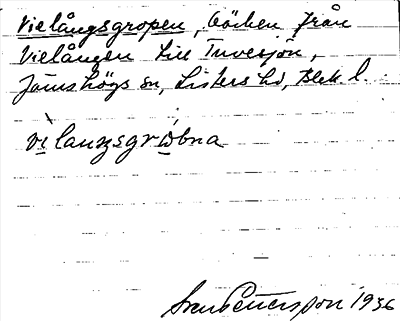 Vielångsgropen, bäcken från
Vielången till Tuvesjön,
Jämshögs sn, Listers hd, Blek. l.
vilaŋsgrɷbna
Sven Petersson 1936